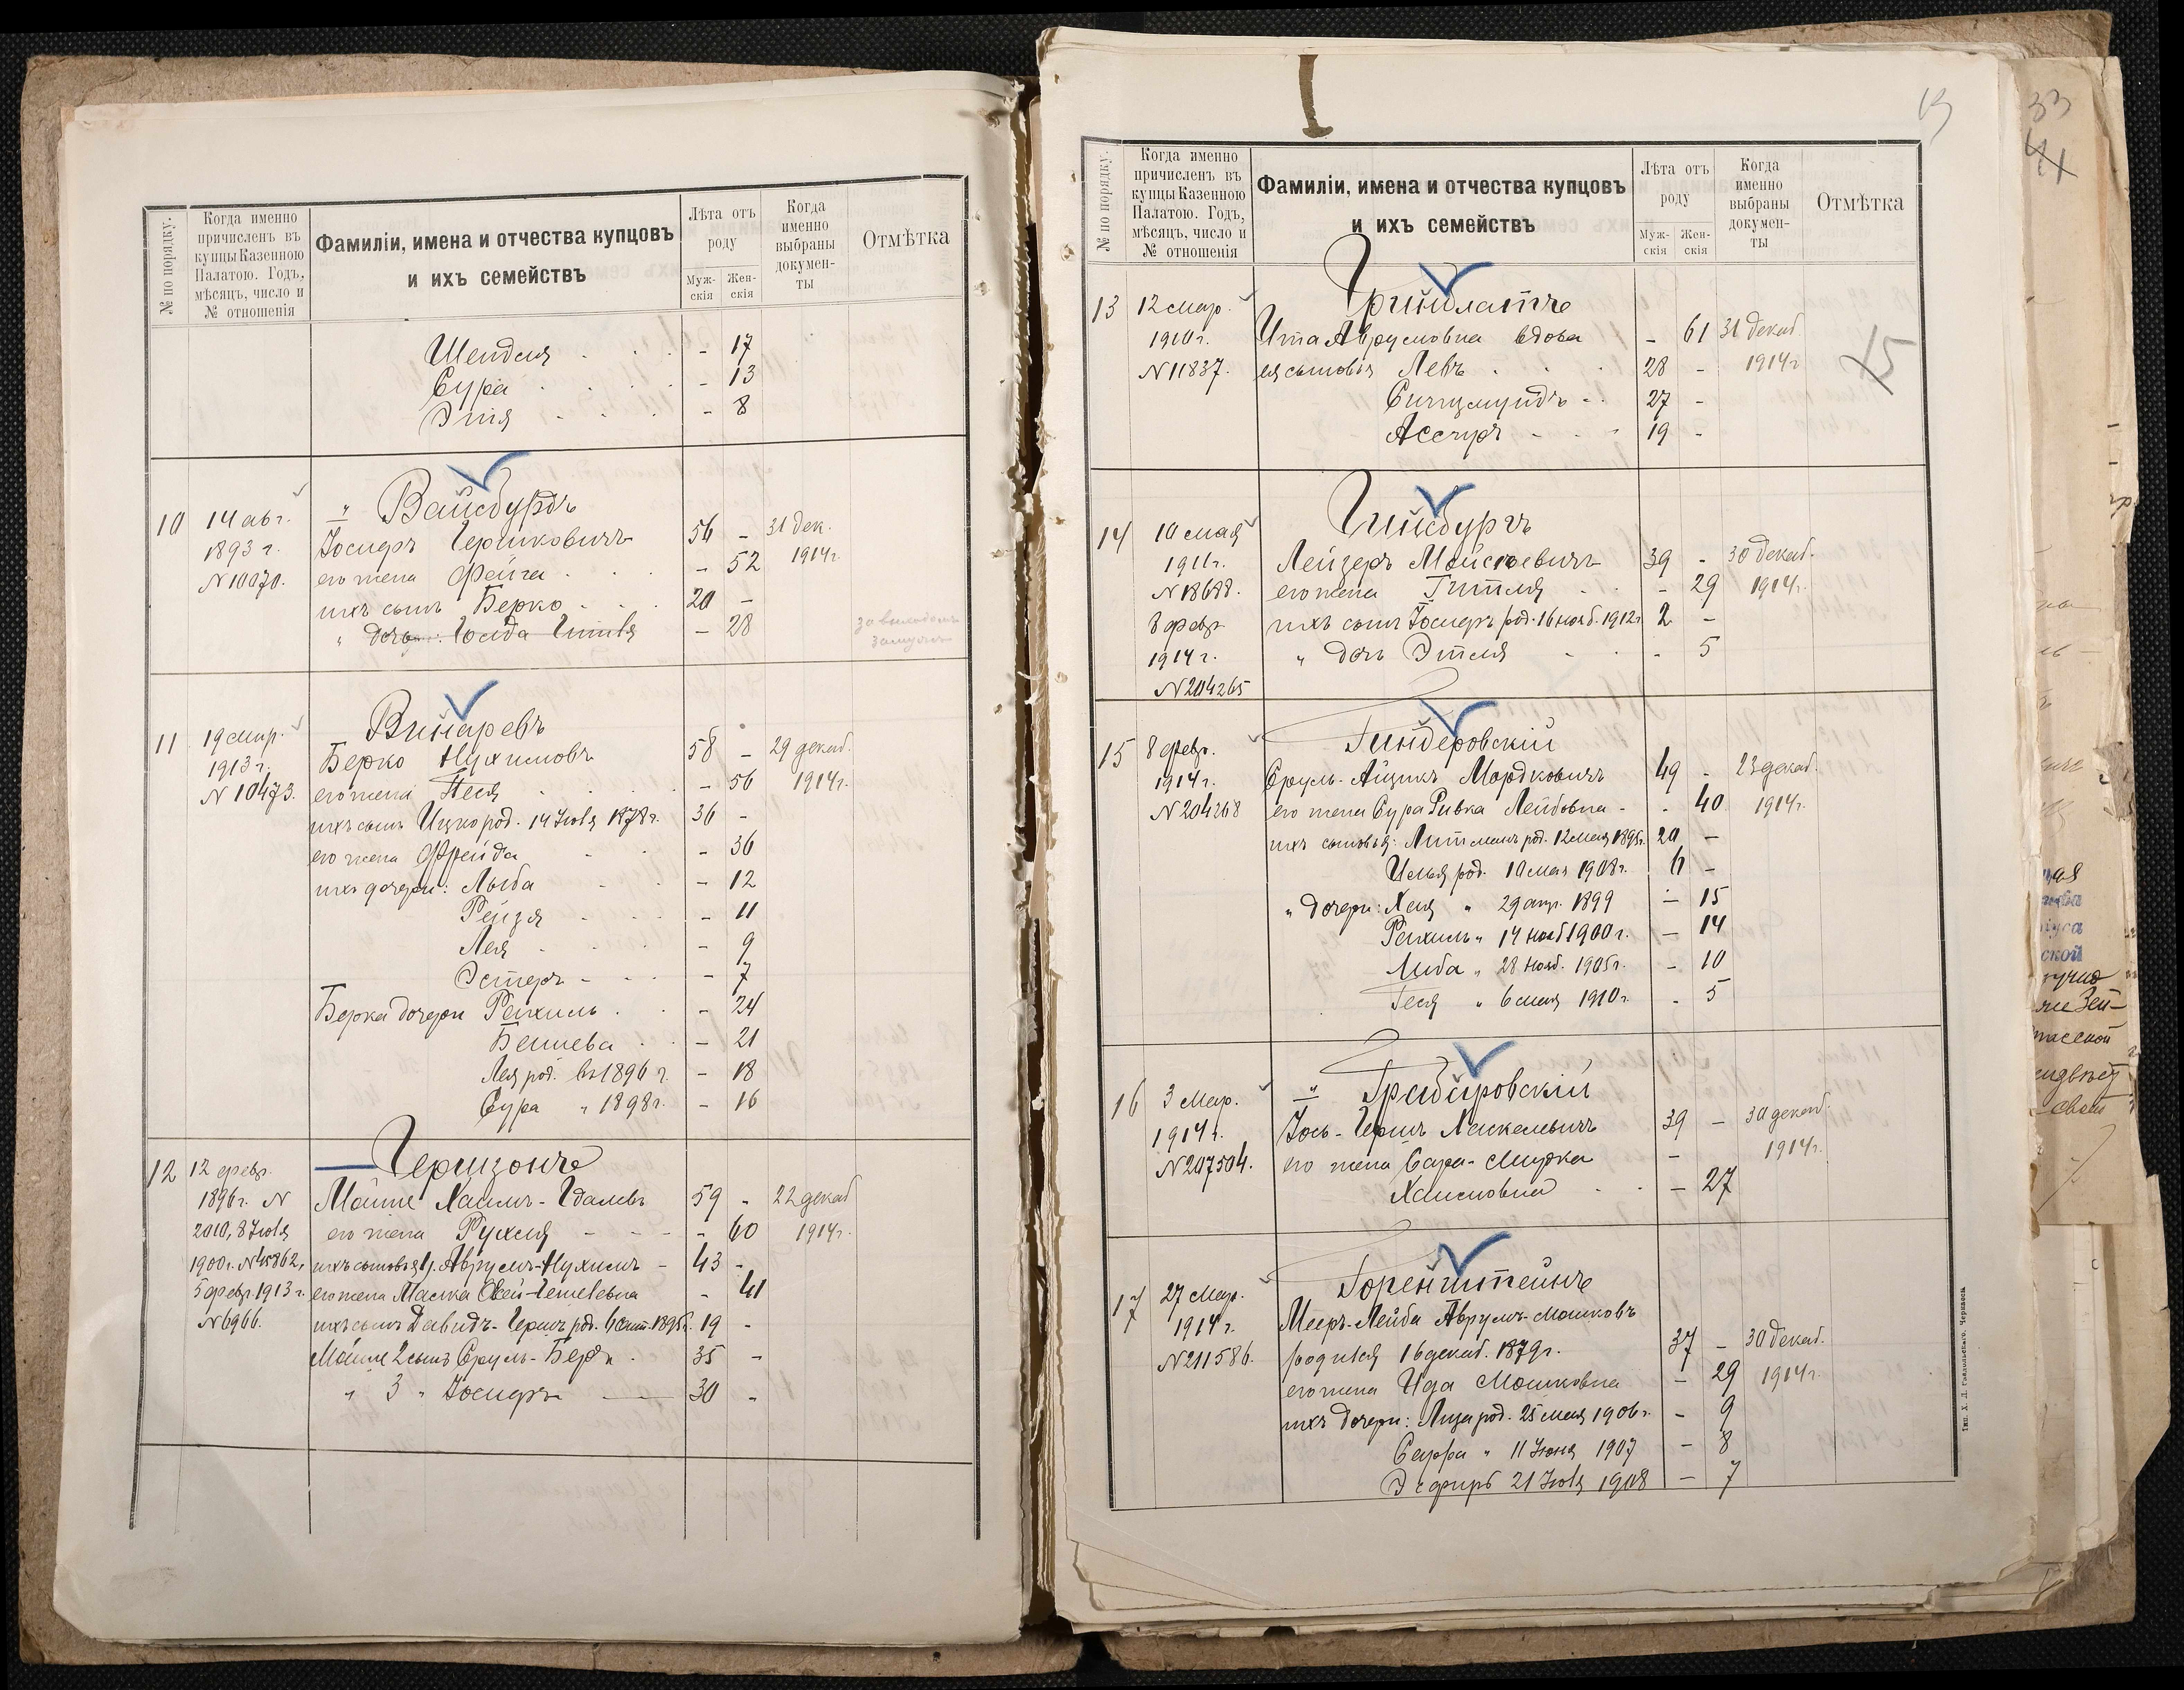 № по порядку.
Когда именно
причисленъ въ
купцы Казенною
Палатою. Годъ,
мѣсяцъ, число и
№ отношенія
Фамиліи, имена и отчества купцовъ
и ихъ семействъ
Лѣта отъ
роду
Муж-
скія
Жен-
скія
Когда
именно
выбраны
докумен-
ты
Отмѣтка
Шендля - 17
Сура - 13
Этя - 8
Вайсбурдъ
10 14 авг. Іосифъ Гершковичъ 56 - 31 дек.
1893 г. его жена Фейга - 52 1914 г.
N 10070. ихъ сынъ Берко 20 -
" дочь: - 28
Винаревъ
11 19 мар. Берко Нухимовъ 58 - 29 декаб.
1913 г. его жена Песя - 56 1914 г.
N 10473. ихъ сынъ Ицко род. 14 Іюля 1878 г. 36 -
его жена Фрейда - 36
ихъ дочери: Лыба - 12
Рейзя - 11
Лея - 9
Эстеръ - 7
Берка дочери Рахиль - 24
21
Лея род. въ 1896 г. - 18
Сура " 1898 г. - 16
Гершзонъ
12 12 февр.
1896 г. N Хаимъ- 59 - 22 декаб
2010, 8 Іюля его жена Рухля - 60 1914 г.
1900 г. ихъ сыновья 1. Аврумъ-Нухимъ - 43 -
5 февр. 1913 г. его жена - 41
N 6966. ихъ сынъ Давидъ-Гершъ род. 19 -
2 сынъ Сруль-Беръ 35 -
" 3 " Іосифъ 30 -
33
41
№ по порядку.
Когда именно
причисленъ въ
купцы Казенною
Палатою. Годъ,
мѣсяцъ, число и
№ отношенія
Фамиліи, имена и отчества купцовъ
и ихъ семействъ
Лѣта отъ
роду
Муж-
скія
Жен-
скія
Когда
именно
выбраны
докумен-
ты
Отмѣтка
Гринблатъ
13 12 мар.
1910 г. Ита Аврумовна вдова - 61 31 декаб
N 11837. ея сыновья Левъ 28 - 1914 г 15
Сигизмундъ 27 -
19 -
Гинсбургъ
14 10 мая
1911 г. Лейзеръ Мойсеевичъ 39 - 30 декаб.
N 18688. его жена Гитля - 29 1914 г.
8 февр. ихъ сынъ Іосифъ род. 16 нояб. 1912 г 2 -
1914 г. " дочь Этля - 5
N 204265
Гиндеровскій
15 8 февр.
1914 г. Сруль-Айзикъ Мордковичъ 49 - 23 декаб.
N 204268 его жена Сура Ривка Лейбовна - 40 1914 г.
ихъ сыновья: род. 12 мая 20 -
род. 10 мая 1908 г. 6 -
" дочери: Хая " 29 апр. 1899 - 15
Рахиль " 14 нояб 1900 г. - 14
Либа " 28 нояб. 1905 г. - 10
Геся " 6 мая 1910 г. - 5
Грабаровскій
16 3 Мар.
1914 г. Іось-Гершъ Хаскелевичъ 39 - 30 декаб.
N 207504. его жена Сара-Мирка - 1914 г.
Хаимовна - 27
Горенштейнъ
17 27 Мар.
1914 г. Мееръ-Лейба Аврумъ-Мошковъ
N 211586. родился 16 декаб. 1879 г. 37 - 30 декаб.
его жена Ида Мошковна - 29 1914 г.
ихъ дочери: Лиза род. 25 мая 1906 г. - 9
Сарра " 11 Іюня 1907 - 8
Эсфирь 21 Іюля 1908 - 7